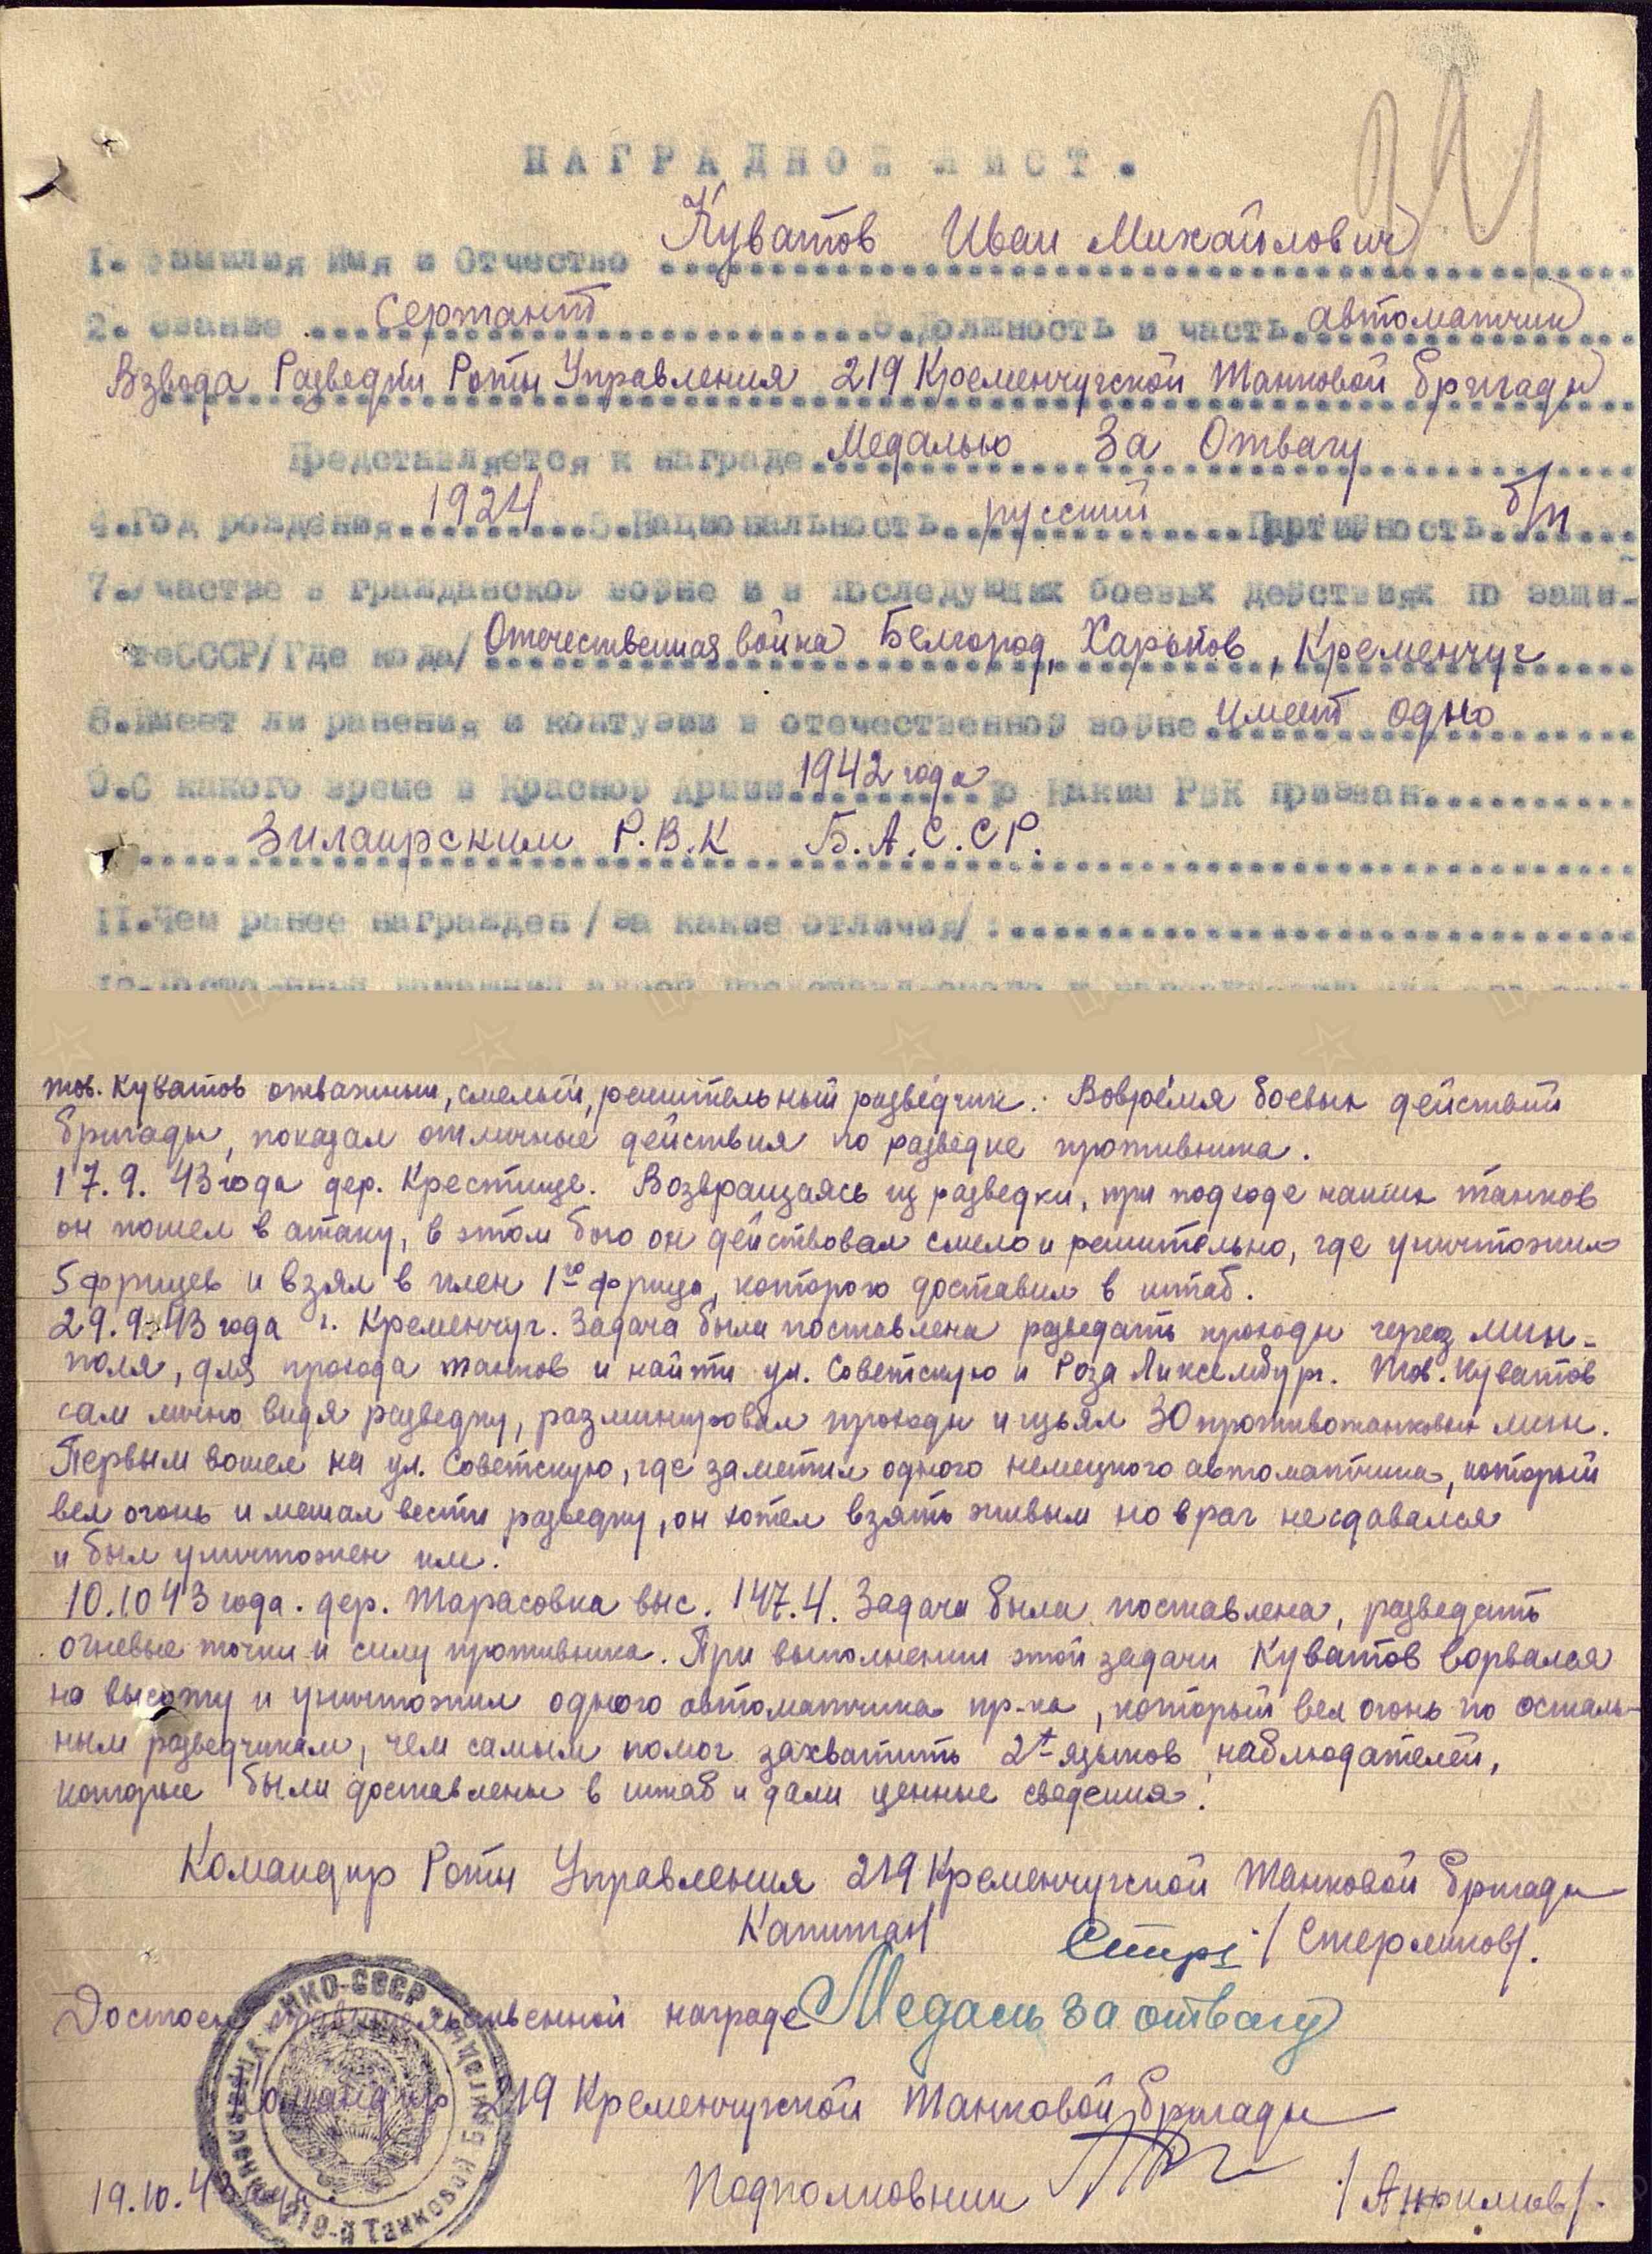 НАГРАДНОЙ ЛИСТ.
1. Фамилия Имя и Отчество Куватов Иван Михайлович
2. Звание Сержант 3. Должность и часть автоматчик
Взвода Разведки Роты Управления 219 Кременчугской Танковой бригады
Представляется к награде Медалью За Отвагу
4. Год рождения 1924 5. Национальность русский Партийность б/п
7. Участие в гражданской войне и в последующих боевых действиях по защи-
те СССР /Где когда/ Отечественная война Белгород, Харьков, Кременчуг
8. Имеет ли ранения и контузии в отечественной войне имеет одно
9. С какого время в Красной Армии 1942 года 10 Каким РВК призван
Зилаирским Р.В.К Б.А.С.С.Р.
11. Чем ранее награжден /за какие отличия/:
тов. Куватов отважный, смелый, решительный разведчик. Вовремя боевых действий
бригады, показал отличные действия по разведке противника.
17.9.43 года дер. Крестище. Возвращаясь из разведки, при подходе наших танков
он пошел в атаку, в этом бою он действовал смело и решительно, где уничтожил
5 фрицев и взял в плен 1го фрица, которого доставил в штаб.
29.9.43 года г. Кременчуг. Задача была поставлена разведать проходы через мин-
поля, для прохода танков и найти ул. Советскую и Роза Люксембург. Тов. Куватов
сам лично видя разведку, разминировал проходы и изъял 30 противотанковых мин.
Первым вошел на ул. Советскую, где заметил одного немецкого автоматчика, который
вел огонь и мешал вести разведку, он хотел взять живым но враг не сдавался
и был уничтожен им.
10.10 43 года. дер. Тарасовка выс. 147.4. Задача была поставлена, разведать
огневые точки и силу противника. При выполнении этой задачи Куватов ворвался
на высоту и уничтожил одного автоматчика пр-ка, который вел огонь по осталь-
ным разведчикам, чем самым помог захватить 2х языков наблюдателей,
которые были доставлены в штаб и дали ценные сведения.
Командир Роты Управления 219 Кременчугской Танковой бригады
Капитан /Стерликов/.
Достоен правительственной награде Медаль за отвагу
Командир 219 Кременчугской Танковой бригады
19.10.43 Подполковник /Анфимов/.
НКО-СССР
219-й Танковой Бригады